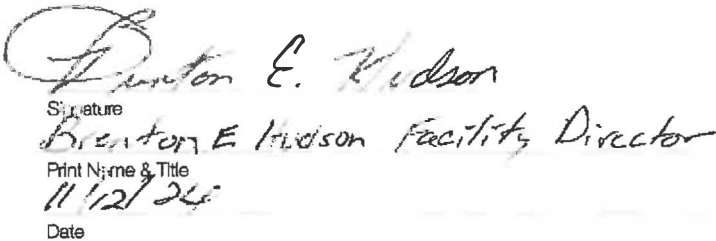 Brenton E. Hudson
Signature
Brenton E Hudson Facility Director
Print Name & Title
11/12/24
Date